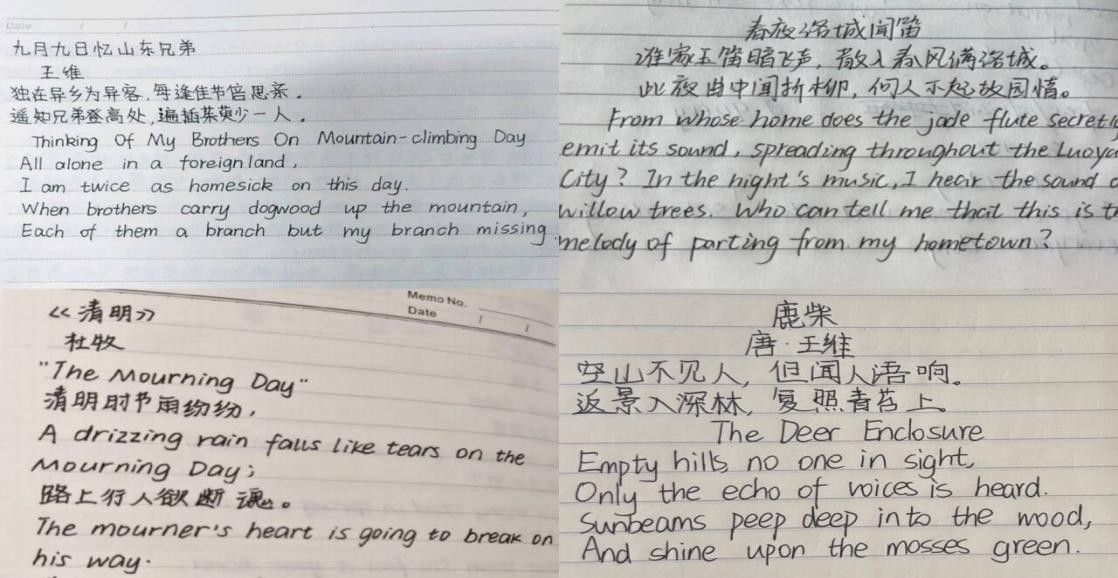 Date / /
九月九日忆山东兄弟
王维
独在异乡为异客，每逢佳节倍思亲。
遥知兄弟登高处，遍插茱萸少一人。
Thinking Of My Brothers On Mountain-climbing Day
All alone in a foreign land,
I am twice as homesick on this day.
When brothers carry dogwood up the mountain,
Each of them a branch but my branch missing
春夜洛城闻笛
谁家玉笛暗飞声，散入春风满洛城。
此夜曲中闻折柳，何人不起故园情。
From whose home does the jade flute secretly
emit its sound, spreading throughout the Luoya
City? In the night's music, I hear the sound o
willow trees. Who can tell me that this is th
melody of parting from my hometown?
Memo No.
Date / /
《清明》
杜牧
"The Mourning Day"
清明时节雨纷纷，
A drizzing rain falls like tears on the
Mourning Day;
路上行人欲断魂。
The mourner's heart is going to break on
his way.
鹿柴
唐·王维
空山不见人，但闻人语响。
返景入深林，复照青苔上。
The Deer Enclosure
Empty hills no one in sight,
Only the echo of voices is heard.
Sunbeams peep deep into the wood,
And shine upon the mosses green.